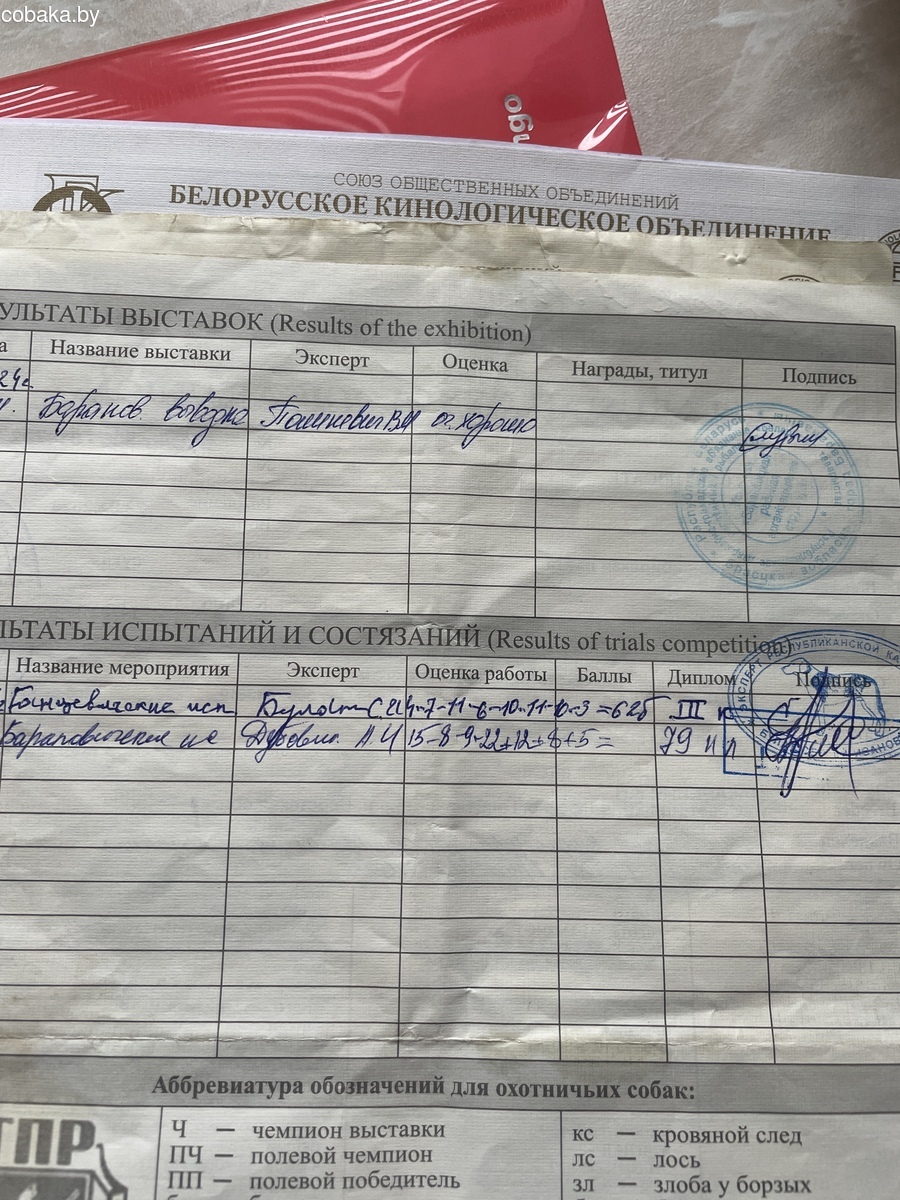 cobaka.by
СОЮЗ ОБЩЕСТВЕННЫХ ОБЪЕДИНЕНИЙ
БЕЛОРУССКОЕ КИНОЛОГИЧЕСКОЕ ОБЪЕДИНЕНИЕ
УЛЬТАТЫ ВЫСТАВОК (Results of the exhibition)
а Название выставки Эксперт Оценка Награды, титул Подпись
Баранов. оч. хорошо
ЛЬТАТЫ ИСПЫТАНИЙ И СОСТЯЗАНИЙ (Results of trials competition)
Название мероприятия Эксперт Оценка работы Баллы Диплом Подпись
Ганцевичские исп Булат С.И 4-7-11-6-10-11-10-3=62б III
Барановичские ис А.И 15-8-9-22+12+8+5= 79
Аббревиатура обозначений для охотничьих собак:
Ч — чемпион выставки
ПЧ — полевой чемпион
ПП — полевой победитель
кс — кровяной след
лс — лось
зл — злоба у борзых